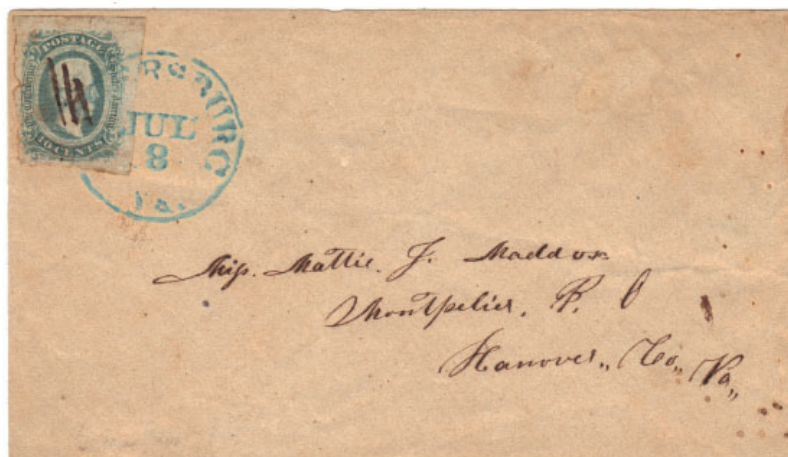 POSTAGE
10 CENTS
ERSBURG
JUL
8
Va.
Miss. Mattie. J. Maddox
Montpelier, P. O
Hanover,, Co,, Va,,